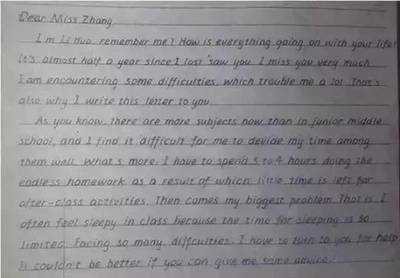 Dear Miss Zhang,
I'm Li Hua, remember me? How is everything going on with your life?
It's almost half a year since I last saw you. I miss you very much.
I am encountering some difficulties, which trouble me a lot. That's
also why I write this letter to you.
As you know, there are more subjects now than in junior middle
school, and I find it difficult for me to devide my time among
them well. What's more, I have to spend 3 to 4 hours doing the
endless homework as a result of which little time is left for
after-class activities. Then comes my biggest problem. That is I
often feel sleepy in class because the time for sleeping is so
limited. Facing so many diffculties, I have to turn to you for help
It couldn't be better if you can give me some advice.